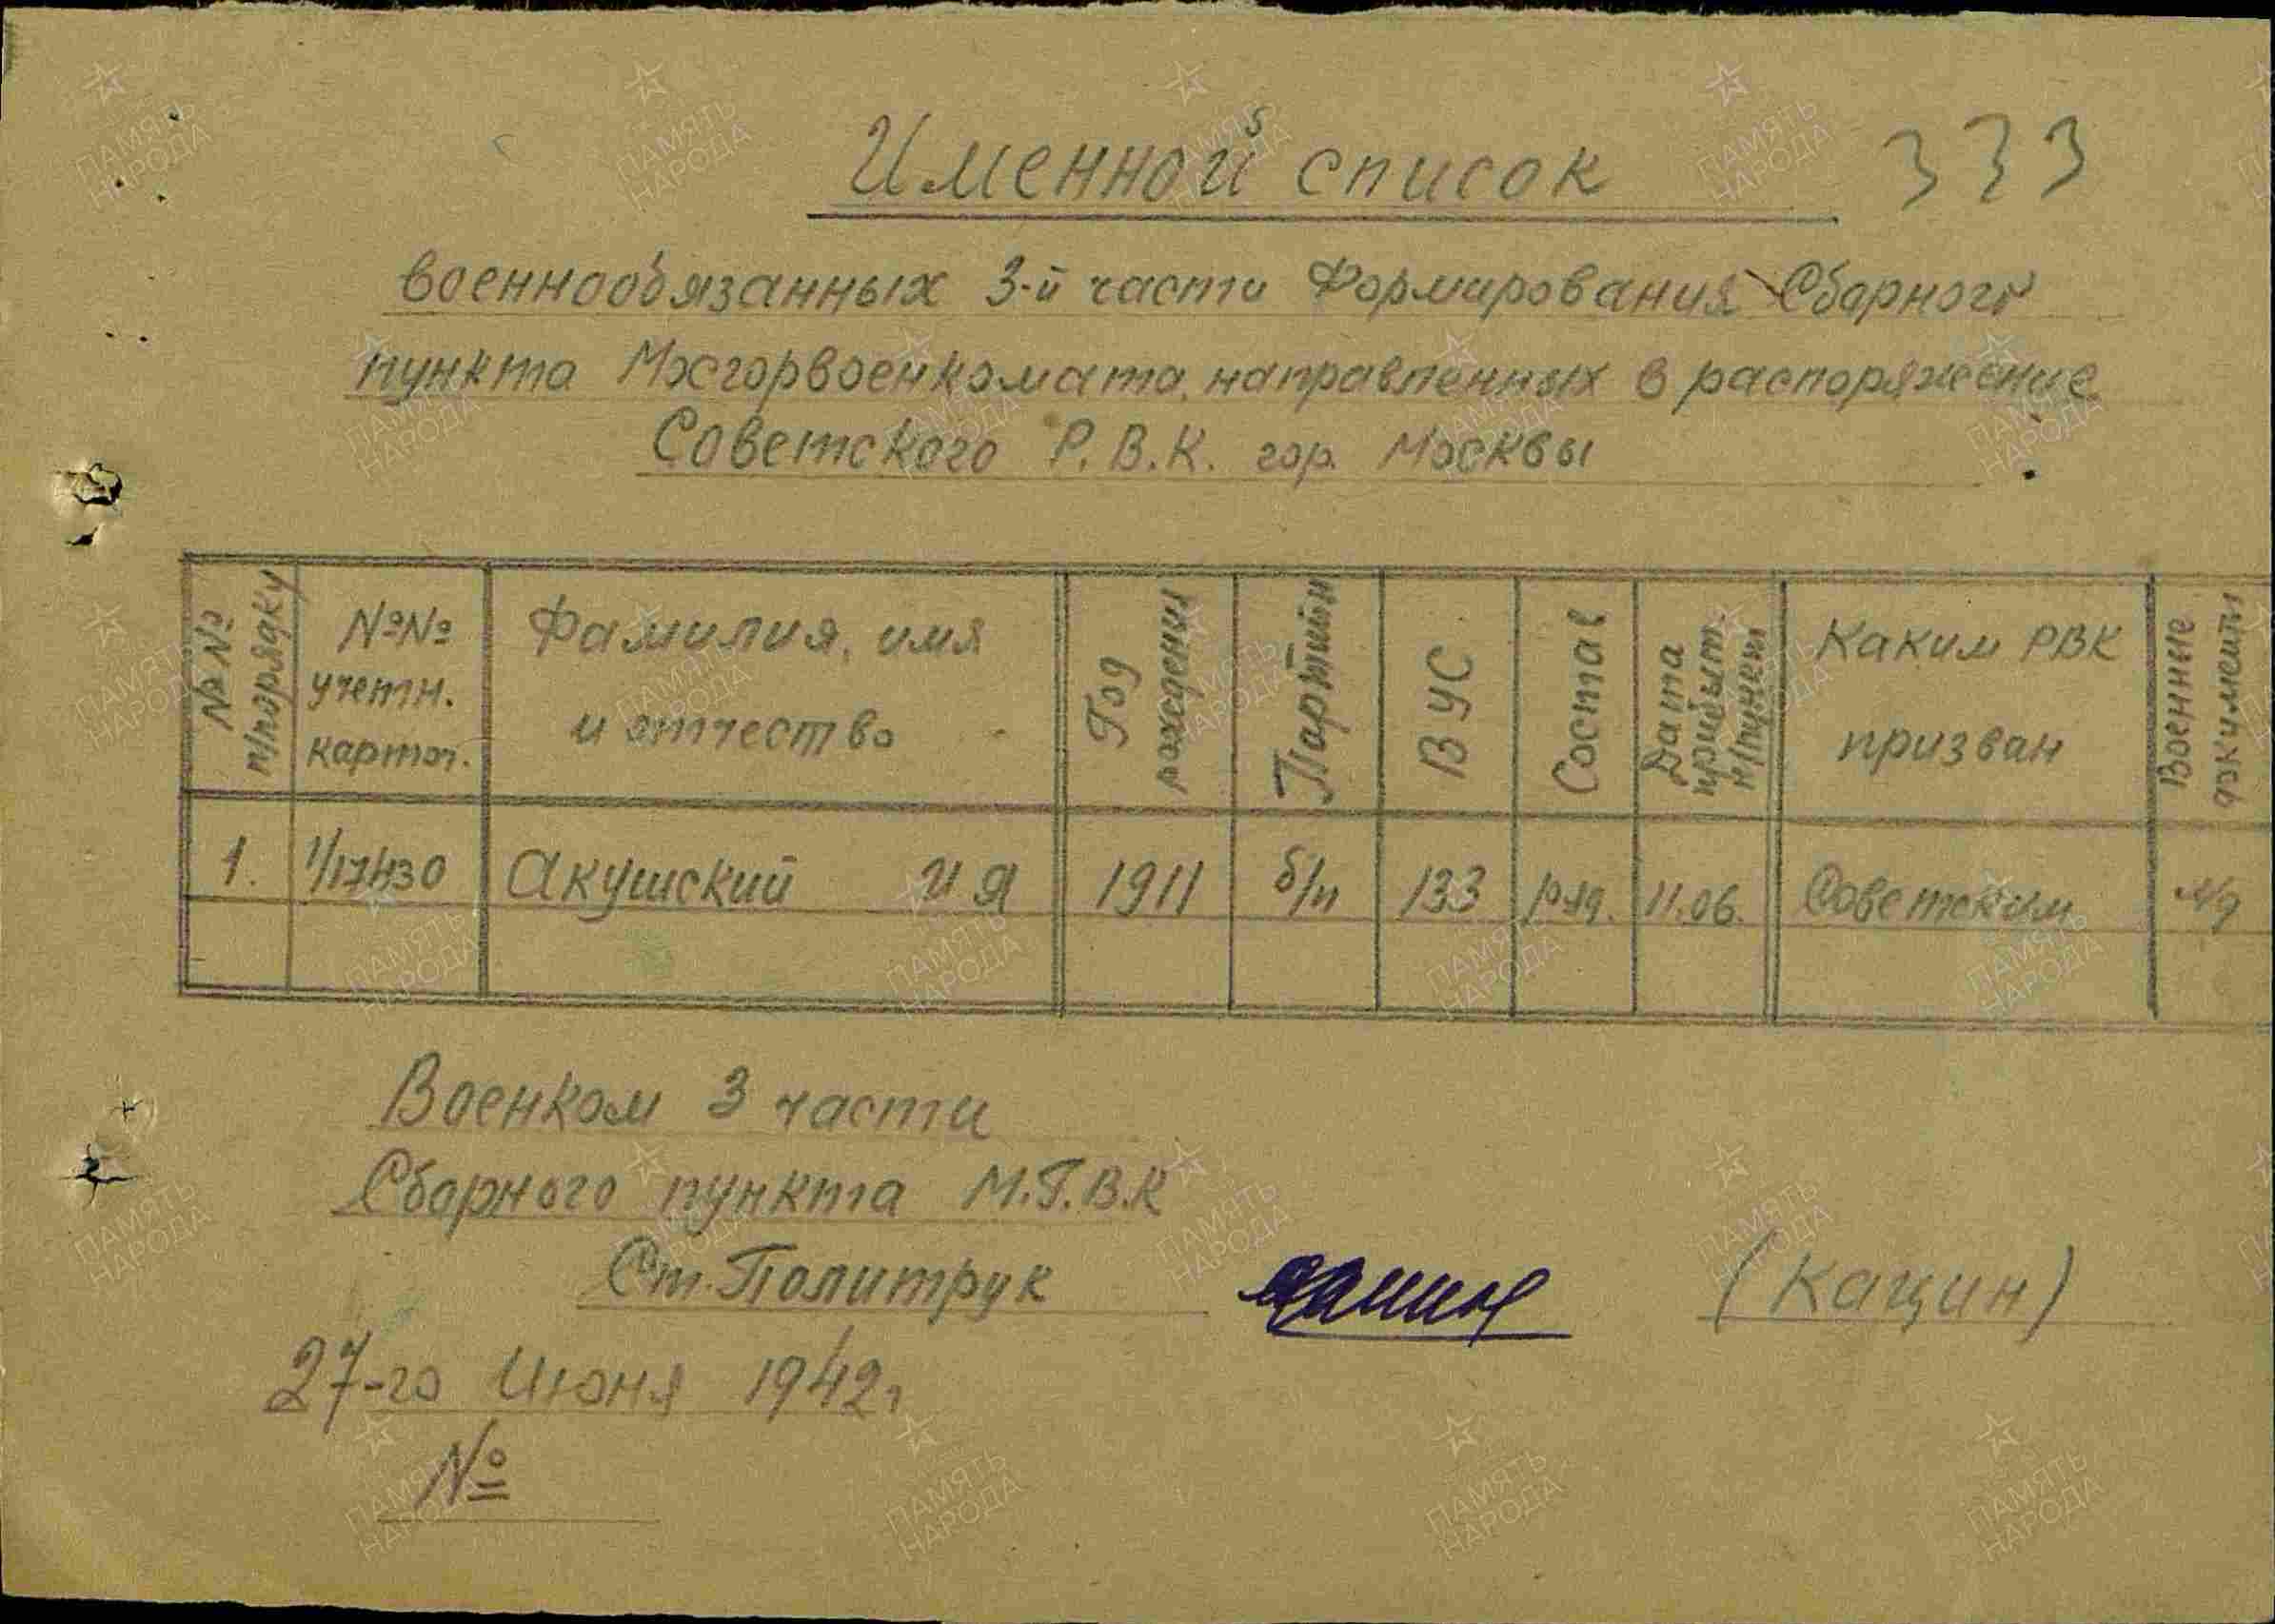 Именной список 333
военнообязанных 3-й части Формирования Сборного
пункта Мосгорвоенкомата, направленных в распоряжение
Советского Р.В.К. гор. Москвы
№№ п/порядку
№№ учетн. карточ.
Фамилия, имя и отчество
Год рождения
Партийн
ВУС
Состав
Дата прибыт. н/пункт
Каким РВК призван
Военные документы
1. 1/17430 Акушский И Я 1911 б/п 133 ряд. 11.06. Советским
Военком 3 части
Сборного пункта М.Г.В.К
Ст. Политрук (Кацин)
27-го Июня 1942 г
№
ПАМЯТЬ НАРОДА